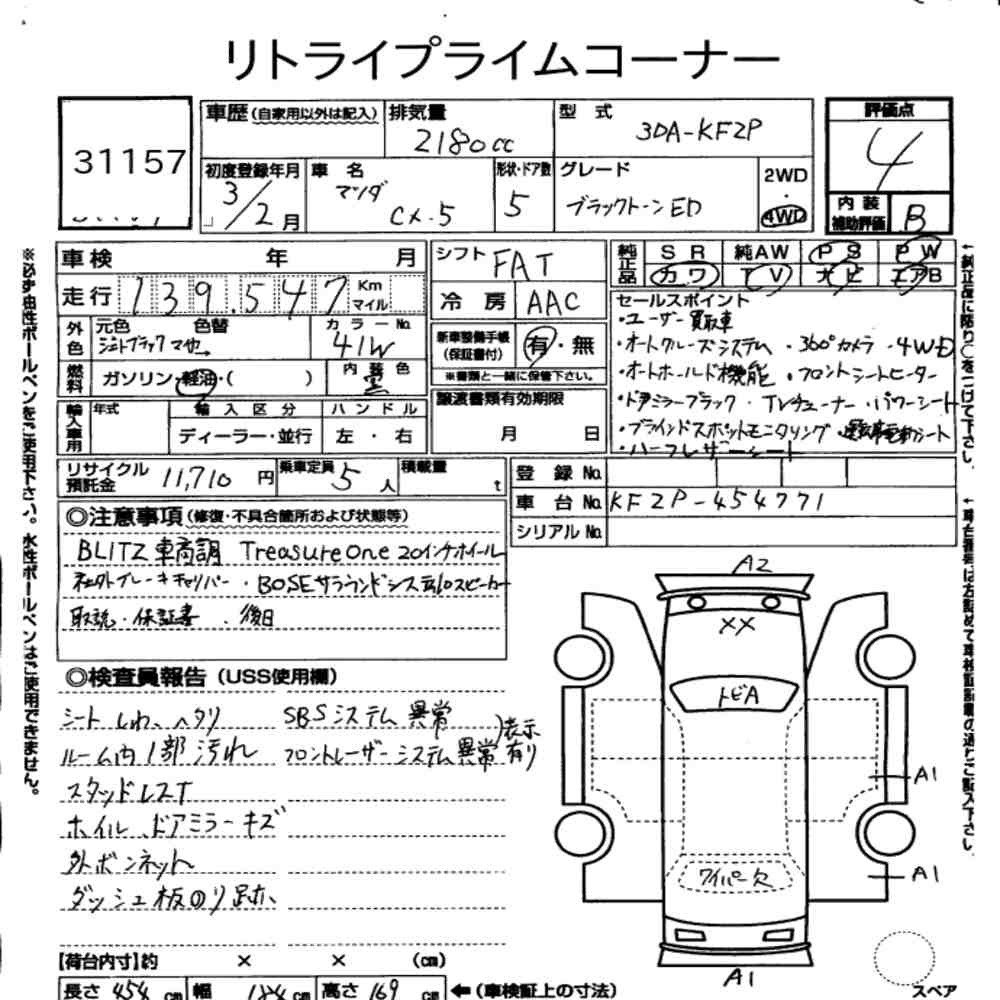 リトライプライムコーナー
31157
車歴 (自家用以外は記入)
排気量
2180cc
型 式
3DA-KF2P
評価点
4
初度登録年月
3/2 月
車 名
マツダ
CX-5
形状・ドア数
5
グレード
ブラックトーンED
2WD
4WD
内装補助評価
B
車検 年 月
シフト
FAT
純正品
SR 純AW PS PW
カワ TV ナビ エアB
走行 139.547 Km マイル
冷房 AAC
セールスポイント
・ユーザー買取車
・オートクルーズシステム ・360°カメラ ・4WD
・オートホールド機能 ・フロントシートヒーター
・ドアミラーブラック ・TVチューナー ・パワーシート
・ブラインドスポットモニタリング 運転電動シート
・ハーフレザーシート
外色
元色 色替
ジェットブラックマイカ
カラーNo.
41W
新車整備手帳
(保証書付)
有・無
※書類と一緒に保管下さい。
燃料
ガソリン・軽油・( )
内装色
黒
譲渡書類有効期限
月 日
輸入車用
年式
輸入区分
ディーラー・並行
ハンドル
左・右
リサイクル預託金
11,710 円
乗車定員
5 人
積載量
t
登録 No.
車台 No. KF2P-454771
シリアル No.
◎注意事項 (修復・不具合箇所および状態等)
BLITZ 車高調 TreasureOne 20インチホイール
社外ブレーキキャリパー ・BOSEサラウンドシステム10スピーカー
取説・保証書 ・後日
◎検査員報告 (USS使用欄)
シートしわ、ヘタリ SBSシステム異常
ルーム内1部汚れ フロントレーザーシステム異常 )表示有り
スタッドレスT
ホイル、ドアミラーキズ
外ボンネット
ダッシュ板のり跡
【荷台内寸】約 × × (cm)
長さ 454 cm 幅 184 cm 高さ 169 cm ←(車検証上の寸法)
A2
XX
トビA
A1
A1
ワイパー欠
A1
スペア
※必ず油性ボールペンをご使用下さい。水性ボールペンはご使用できません。
←純正品に限り○をつけて下さい。
←車台番号は左詰めで車検証記載の通りご記入下さい。